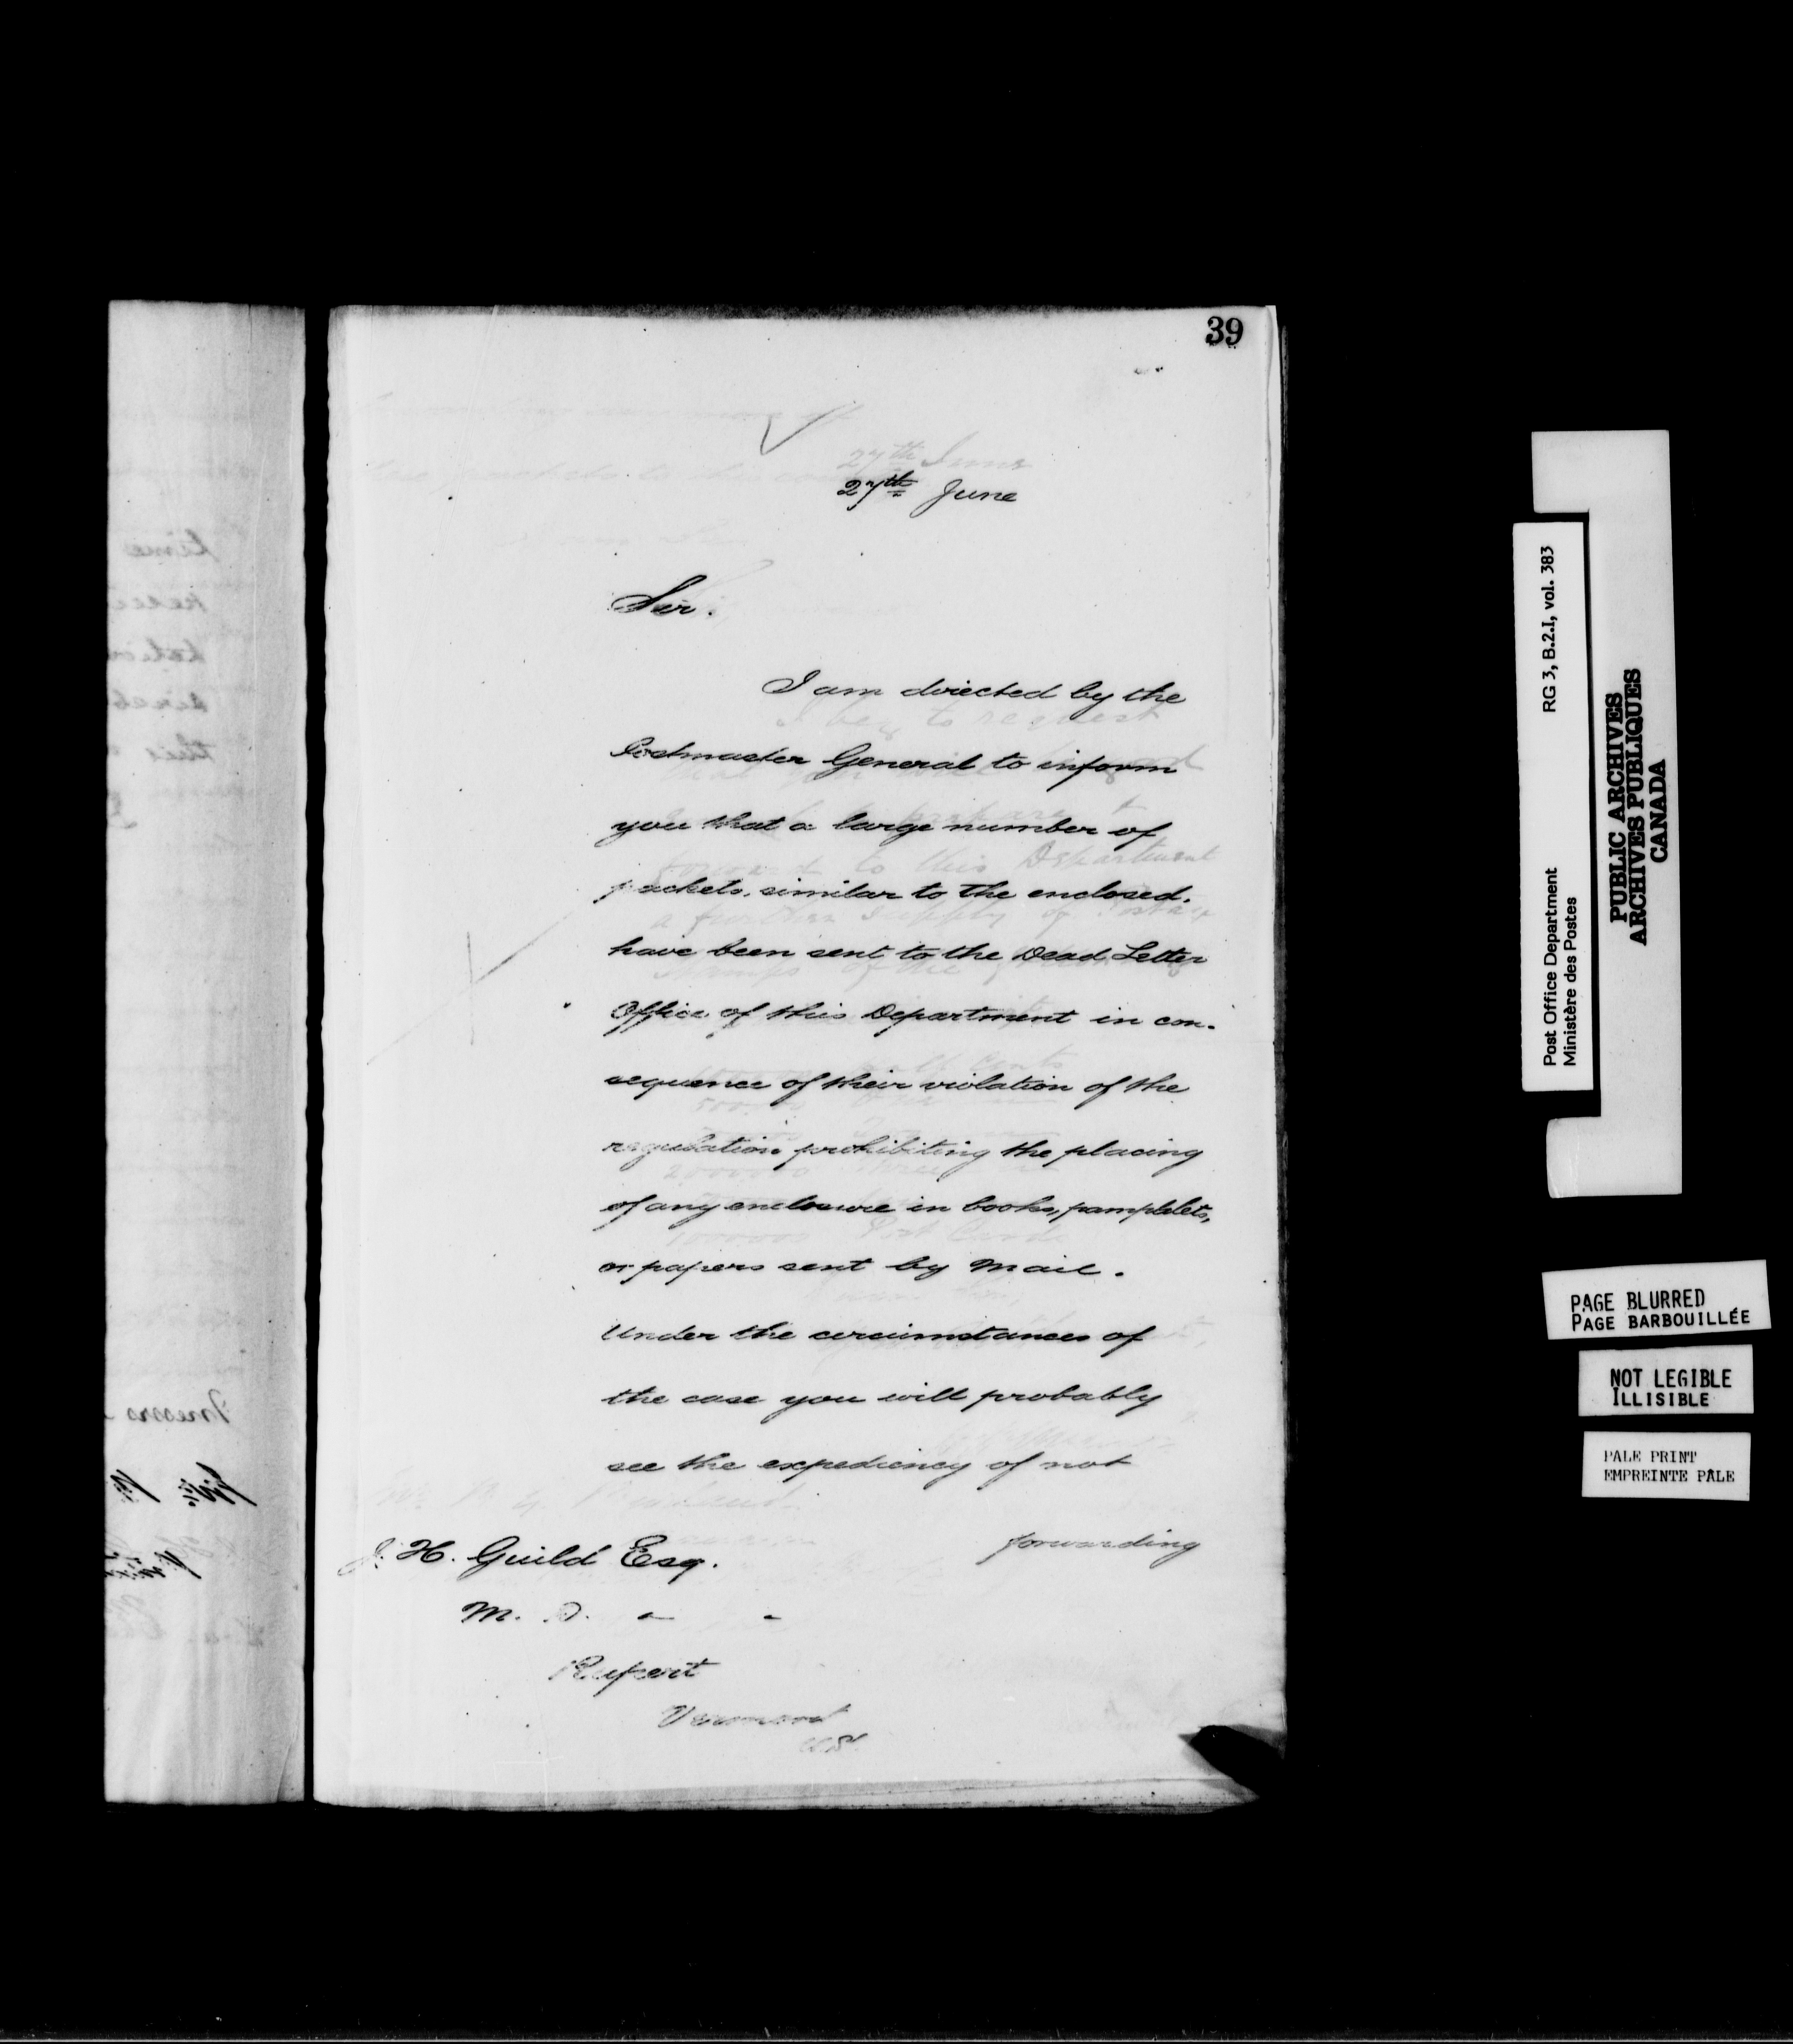 39
27th June
Sir.
I am directed by the
Postmaster General to inform
you that a large number of
packets, similar to the enclosed.
have been sent to the Dead Letter
Office of this Department in con-
sequence of their violation of the
regulation prohibiting the placing
of any enclosure in books, pamphlets,
or papers sent by mail.
Under the circumstances of
the case you will probably
see the expediency of not
forwarding
J. H. Guild Esq.
M. D. - -
Rupert
Vermont
U.S.
Post Office Department RG 3, B.2.I, vol. 383
Ministère des Postes
PUBLIC ARCHIVES
ARCHIVES PUBLIQUES
CANADA
PAGE BLURRED
PAGE BARBOUILLÉE
NOT LEGIBLE
ILLISIBLE
PALE PRINT
EMPREINTE PÂLE